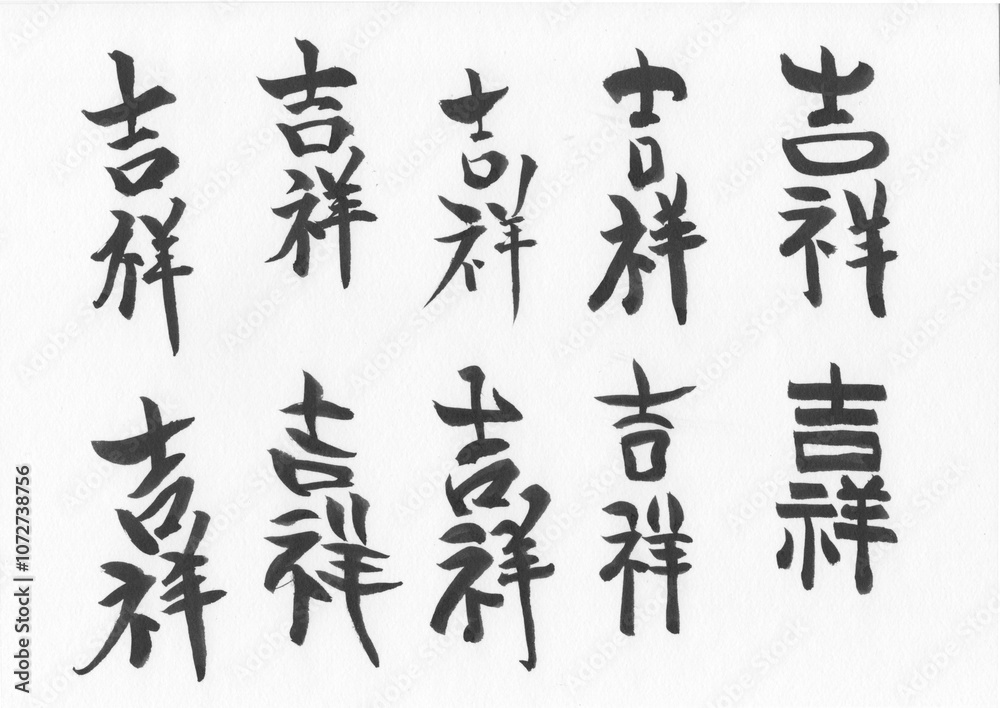 吉祥 吉祥 吉祥 吉祥 吉祥
吉祥 吉祥 吉祥 吉祥 吉祥
Adobe Stock | #1072738756